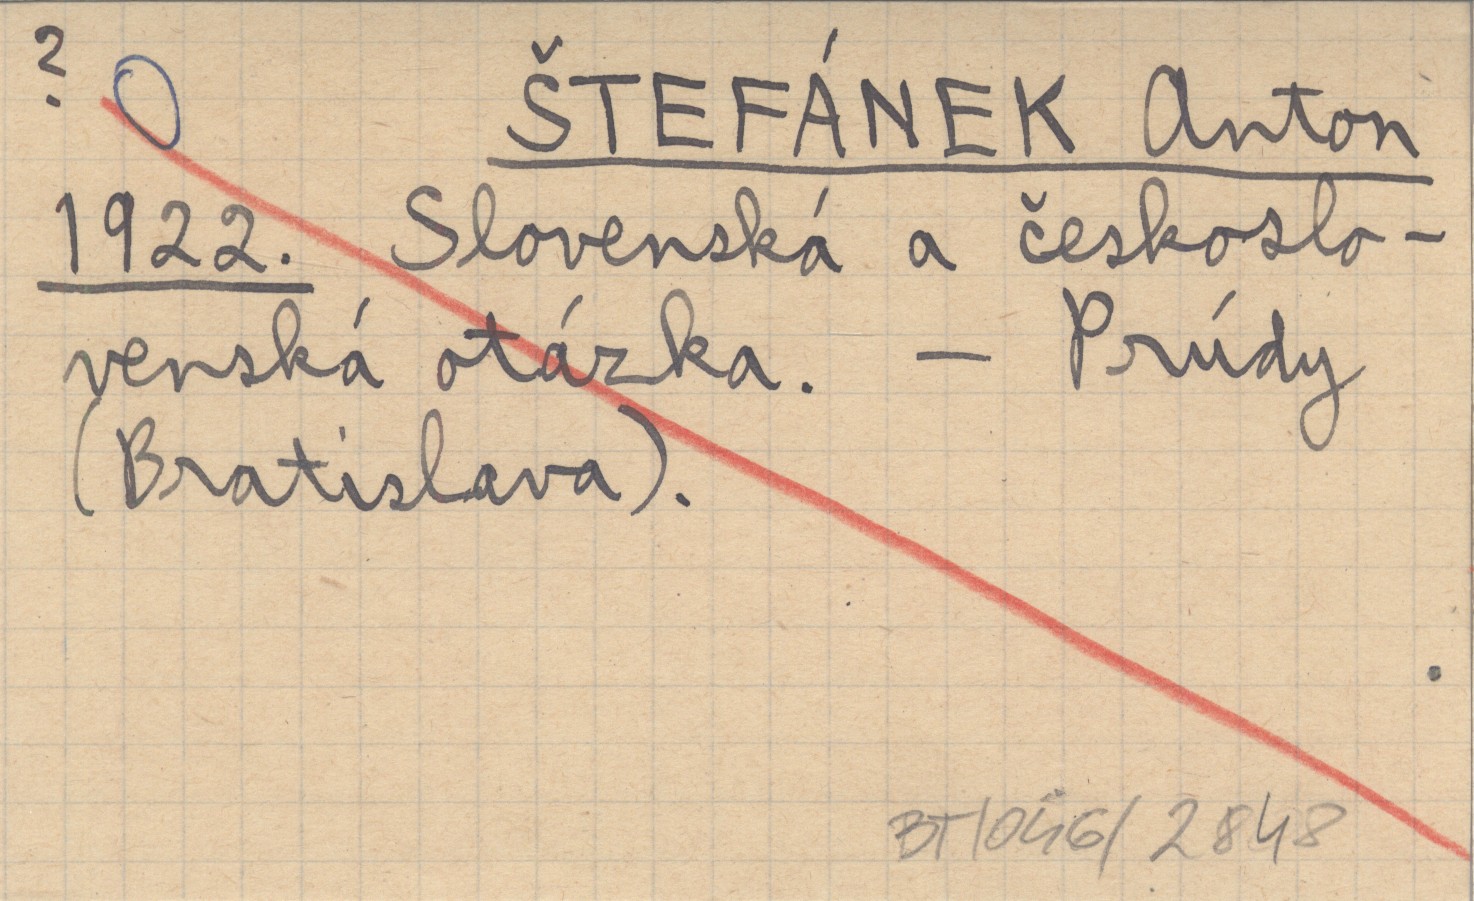 ?
ŠTEFÁNEK Anton
1922. Slovenská a českoslo-
venská otázka. — Prúdy
(Bratislava).
BT/046/2848